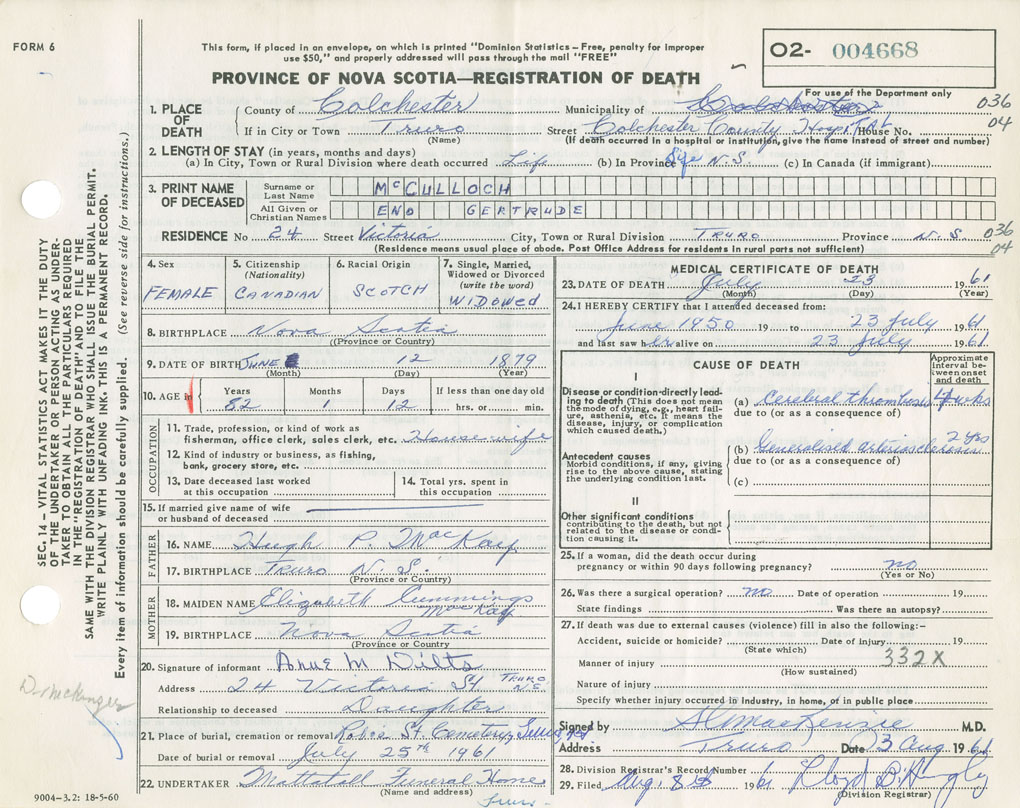 FORM 6
This form, if placed in an envelope, on which is printed "Dominion Statistics – Free, penalty for improper
use $50," and properly addressed will pass through the mail "FREE"
PROVINCE OF NOVA SCOTIA—REGISTRATION OF DEATH
O2- 004668
For use of the Department only
1. PLACE OF DEATH
County of Colchester Municipality of 036
If in City or Town Truro Street Colchester County Hospital House No. 04
(Name) (If death occurred in a hospital or institution, give the name instead of street and number)
2. LENGTH OF STAY (in years, months and days)
(a) In City, Town or Rural Division where death occurred Life (b) In Province Life N.S. (c) In Canada (if immigrant)
3. PRINT NAME OF DECEASED
Surname or Last Name McCULLOCH
All Given or Christian Names ENO GERTRUDE
RESIDENCE No 24 Street Victoria City, Town or Rural Division TRURO Province N.S. 036
(Residence means usual place of abode. Post Office Address for residents in rural parts not sufficient) 04
4. Sex FEMALE
5. Citizenship (Nationality) CANADIAN
6. Racial Origin SCOTCH
7. Single, Married, Widowed or Divorced (write the word) WIDOWED
8. BIRTHPLACE Nova Scotia
(Province or Country)
9. DATE OF BIRTH JUNE 12 1879
(Month) (Day) (Year)
10. AGE in Years 82 Months 1 Days 12 If less than one day old hrs. or min.
OCCUPATION
11. Trade, profession, or kind of work as
fisherman, office clerk, sales clerk, etc. Housewife
12. Kind of industry or business, as fishing,
bank, grocery store, etc.
13. Date deceased last worked
at this occupation
14. Total yrs. spent in
this occupation
15. If married give name of wife
or husband of deceased
FATHER
16. NAME Hugh P. MacKay
17. BIRTHPLACE Truro N.S.
(Province or Country)
MOTHER
18. MAIDEN NAME Elizabeth Cummings
MacKay
19. BIRTHPLACE Nova Scotia
(Province or Country)
20. Signature of informant Anne M Dilts
Address 24 Victoria St TRURO N.S.
Relationship to deceased Daughter
21. Place of burial, cremation or removal Robie St. Cemetery, Truro, NS
Date of burial or removal July 25th 1961
22. UNDERTAKER Mattatall Funeral Home
(Name and address)
Truro
MEDICAL CERTIFICATE OF DEATH
23. DATE OF DEATH July 23 1961
(Month) (Day) (Year)
24. I HEREBY CERTIFY that I attended deceased from:
June 1950 19 to 23 July 1961
and last saw her alive on 23 July 1961
CAUSE OF DEATH
Approximate interval between onset and death
I
Disease or condition directly leading to death (This does not mean
the mode of dying, e.g., heart failure, asthenia, etc. It means the
disease, injury, or complication
which caused death.)
(a) Cerebral thrombosis 4 wks
due to (or as a consequence of)
Antecedent causes
Morbid conditions, if any, giving
rise to the above cause, stating the
underlying condition last.
(b) Generalised arteriosclerosis 2 yrs
due to (or as a consequence of)
(c)
II
Other significant conditions
contributing to the death, but not
related to the disease or condition causing it.
25. If a woman, did the death occur during
pregnancy or within 90 days following pregnancy? no
(Yes or No)
26. Was there a surgical operation? no Date of operation 19
State findings Was there an autopsy?
27. If death was due to external causes (violence) fill in also the following:-
Accident, suicide or homicide? Date of injury 19
(State which)
Manner of injury 332X
(How sustained)
Nature of injury
Specify whether injury occurred in industry, in home, or in public place
Signed by MacKenzie M.D.
Address Truro Date 3 Aug 1961
28. Division Registrar's Record Number
29. Filed Aug. 8 1961
(Division Registrar)
SEC. 14 – VITAL STATISTICS ACT MAKES IT THE DUTY
OF THE UNDERTAKER OR PERSON ACTING AS UNDERTAKER TO OBTAIN ALL THE PARTICULARS REQUIRED
IN THE "REGISTRATION OF DEATH" AND TO FILE THE
SAME WITH THE DIVISION REGISTRAR WHO SHALL ISSUE THE BURIAL PERMIT.
WRITE PLAINLY WITH UNFADING INK. THIS IS A PERMANENT RECORD.
Every item of information should be carefully supplied. (See reverse side for instructions.)
9004-3.2: 18-5-60